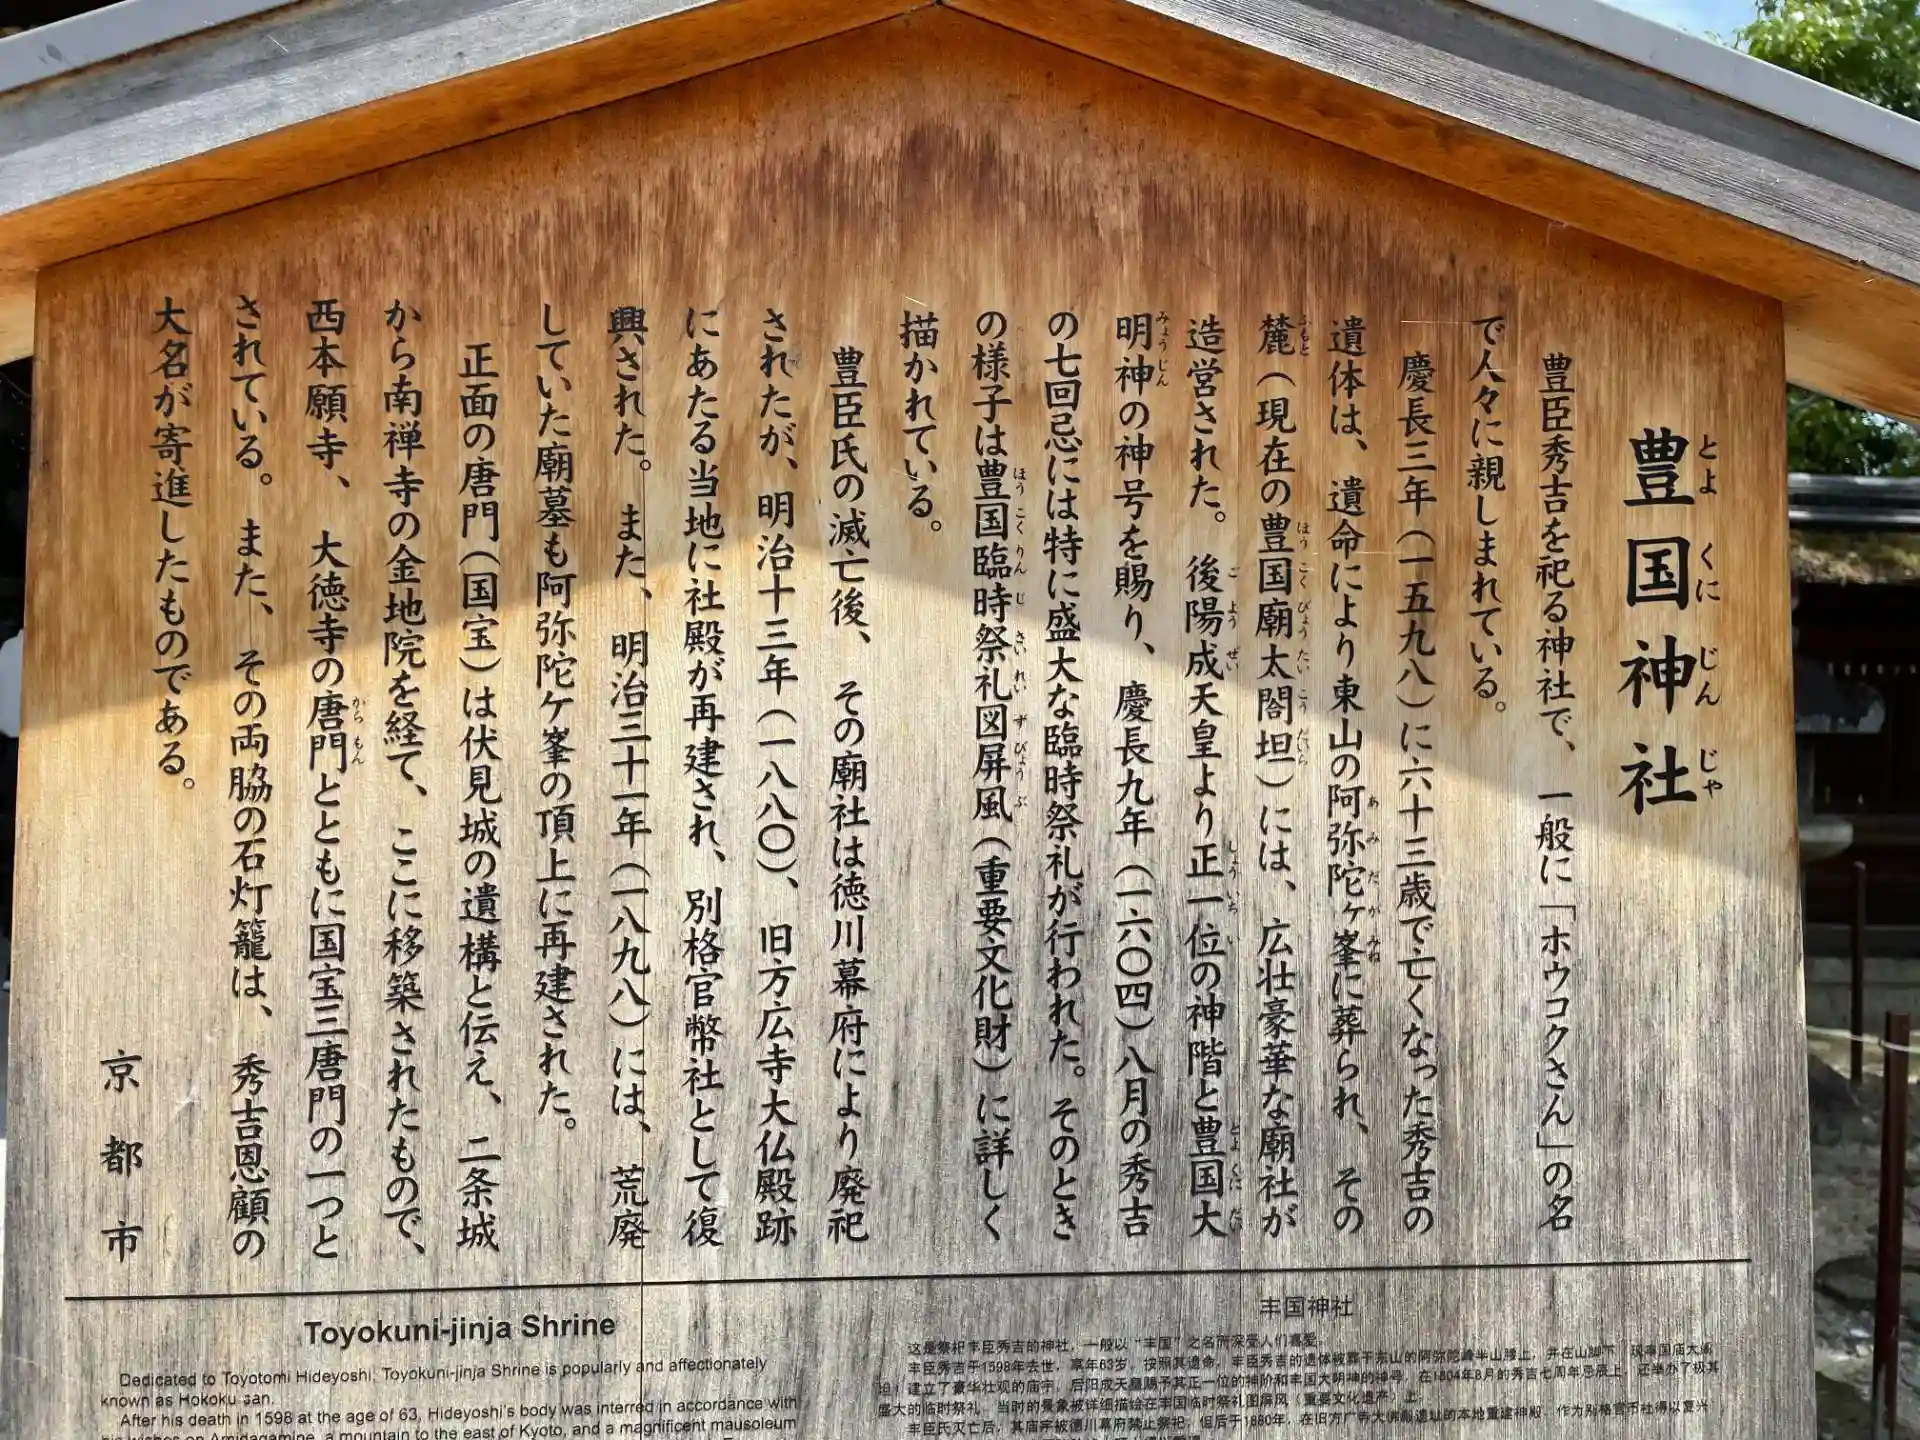 豊国神社
豊臣秀吉を祀る神社で、一般に「ホウコクさん」の名
で人々に親しまれている。
慶長三年（一五九八）に六十三歳で亡くなった秀吉の
遺体は、遺命により東山の阿弥陀ヶ峯に葬られ、その
麓（現在の豊国廟太閤坦）には、広壮豪華な廟社が
造営された。後陽成天皇より正一位の神階と豊国大
明神の神号を賜り、慶長九年（一六〇四）八月の秀吉
の七回忌には特に盛大な臨時祭礼が行われた。そのとき
の様子は豊国臨時祭礼図屏風（重要文化財）に詳しく
描かれている。
豊臣氏の滅亡後、その廟社は徳川幕府により廃祀
されたが、明治十三年（一八八〇）、旧方広寺大仏殿跡
にあたる当地に社殿が再建され、別格官幣社として復
興された。また、明治三十一年（一八九八）には、荒廃
していた廟墓も阿弥陀ケ峯の頂上に再建された。
正面の唐門（国宝）は伏見城の遺構と伝え、二条城
から南禅寺の金地院を経て、ここに移築されたもので、
西本願寺、大徳寺の唐門とともに国宝三唐門の一つと
されている。また、その両脇の石灯籠は、秀吉恩顧の
大名が寄進したものである。
京都市
Toyokuni-jinja Shrine
Dedicated to Toyotomi Hideyoshi, Toyokuni-jinja Shrine is popularly and affectionately
known as Hokoku san.
After his death in 1598 at the age of 63, Hideyoshi's body was interred in accordance with
his wishes on Amidagamine, a mountain to the east of Kyoto, and a magnificent mausoleum
丰国神社
这是祭祀丰臣秀吉的神社，一般以“丰国”之名而深受人们喜爱。
丰臣秀吉于1598年去世，享年63岁。按照其遗命，丰臣秀吉的遗体被葬于东山的阿弥陀峰半山腰上，并在山脚下
建立了豪华壮观的庙宇，后阳成天皇赐予其正一位的神阶和丰国大明神的神号。在1604年8月的秀吉七周年忌辰上，还举办了极其
盛大的临时祭礼。当时的景象被详细描绘在丰国临时祭礼图屏风（重要文化遗产）上。
丰臣氏灭亡后，其庙宇被德川幕府禁止祭祀，但后于1880年，在旧方广寺大佛殿遗址的本地重建神殿，作为别格官币社得以复兴